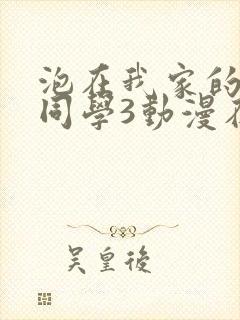 泡在我家的
同學3動漫在
吴皇後